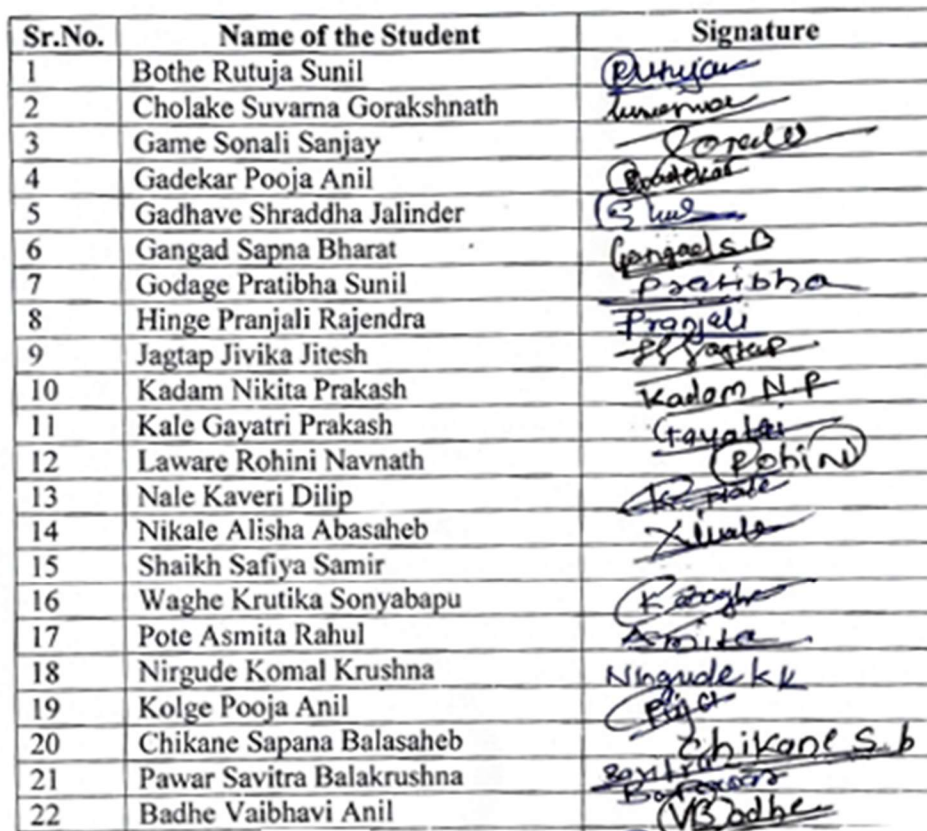 Sr.No. Name of the Student Signature
1 Bothe Rutuja Sunil Rutuja
2 Cholake Suvarna Gorakshnath
3 Game Sonali Sanjay
4 Gadekar Pooja Anil
5 Gadhave Shraddha Jalinder
6 Gangad Sapna Bharat Gangad S.B
7 Godage Pratibha Sunil Pratibha
8 Hinge Pranjali Rajendra Pranjali
9 Jagtap Jivika Jitesh
10 Kadam Nikita Prakash Kadam N.P
11 Kale Gayatri Prakash Gayatri
12 Laware Rohini Navnath Rohini
13 Nale Kaveri Dilip
14 Nikale Alisha Abasaheb
15 Shaikh Safiya Samir
16 Waghe Krutika Sonyabapu
17 Pote Asmita Rahul Asmita
18 Nirgude Komal Krushna Nirgude KK
19 Kolge Pooja Anil
20 Chikane Sapana Balasaheb Chikane S.b
21 Pawar Savitra Balakrushna
22 Badhe Vaibhavi Anil VBadhe